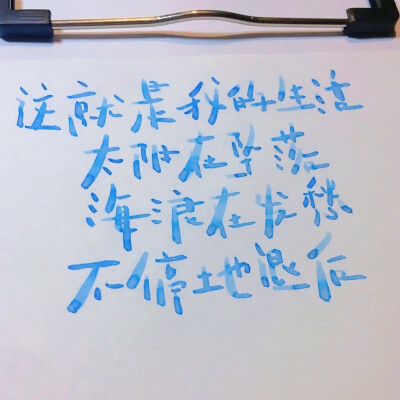 这就是我的生活
太阳在坠落
海浪在发愁
不停地退后